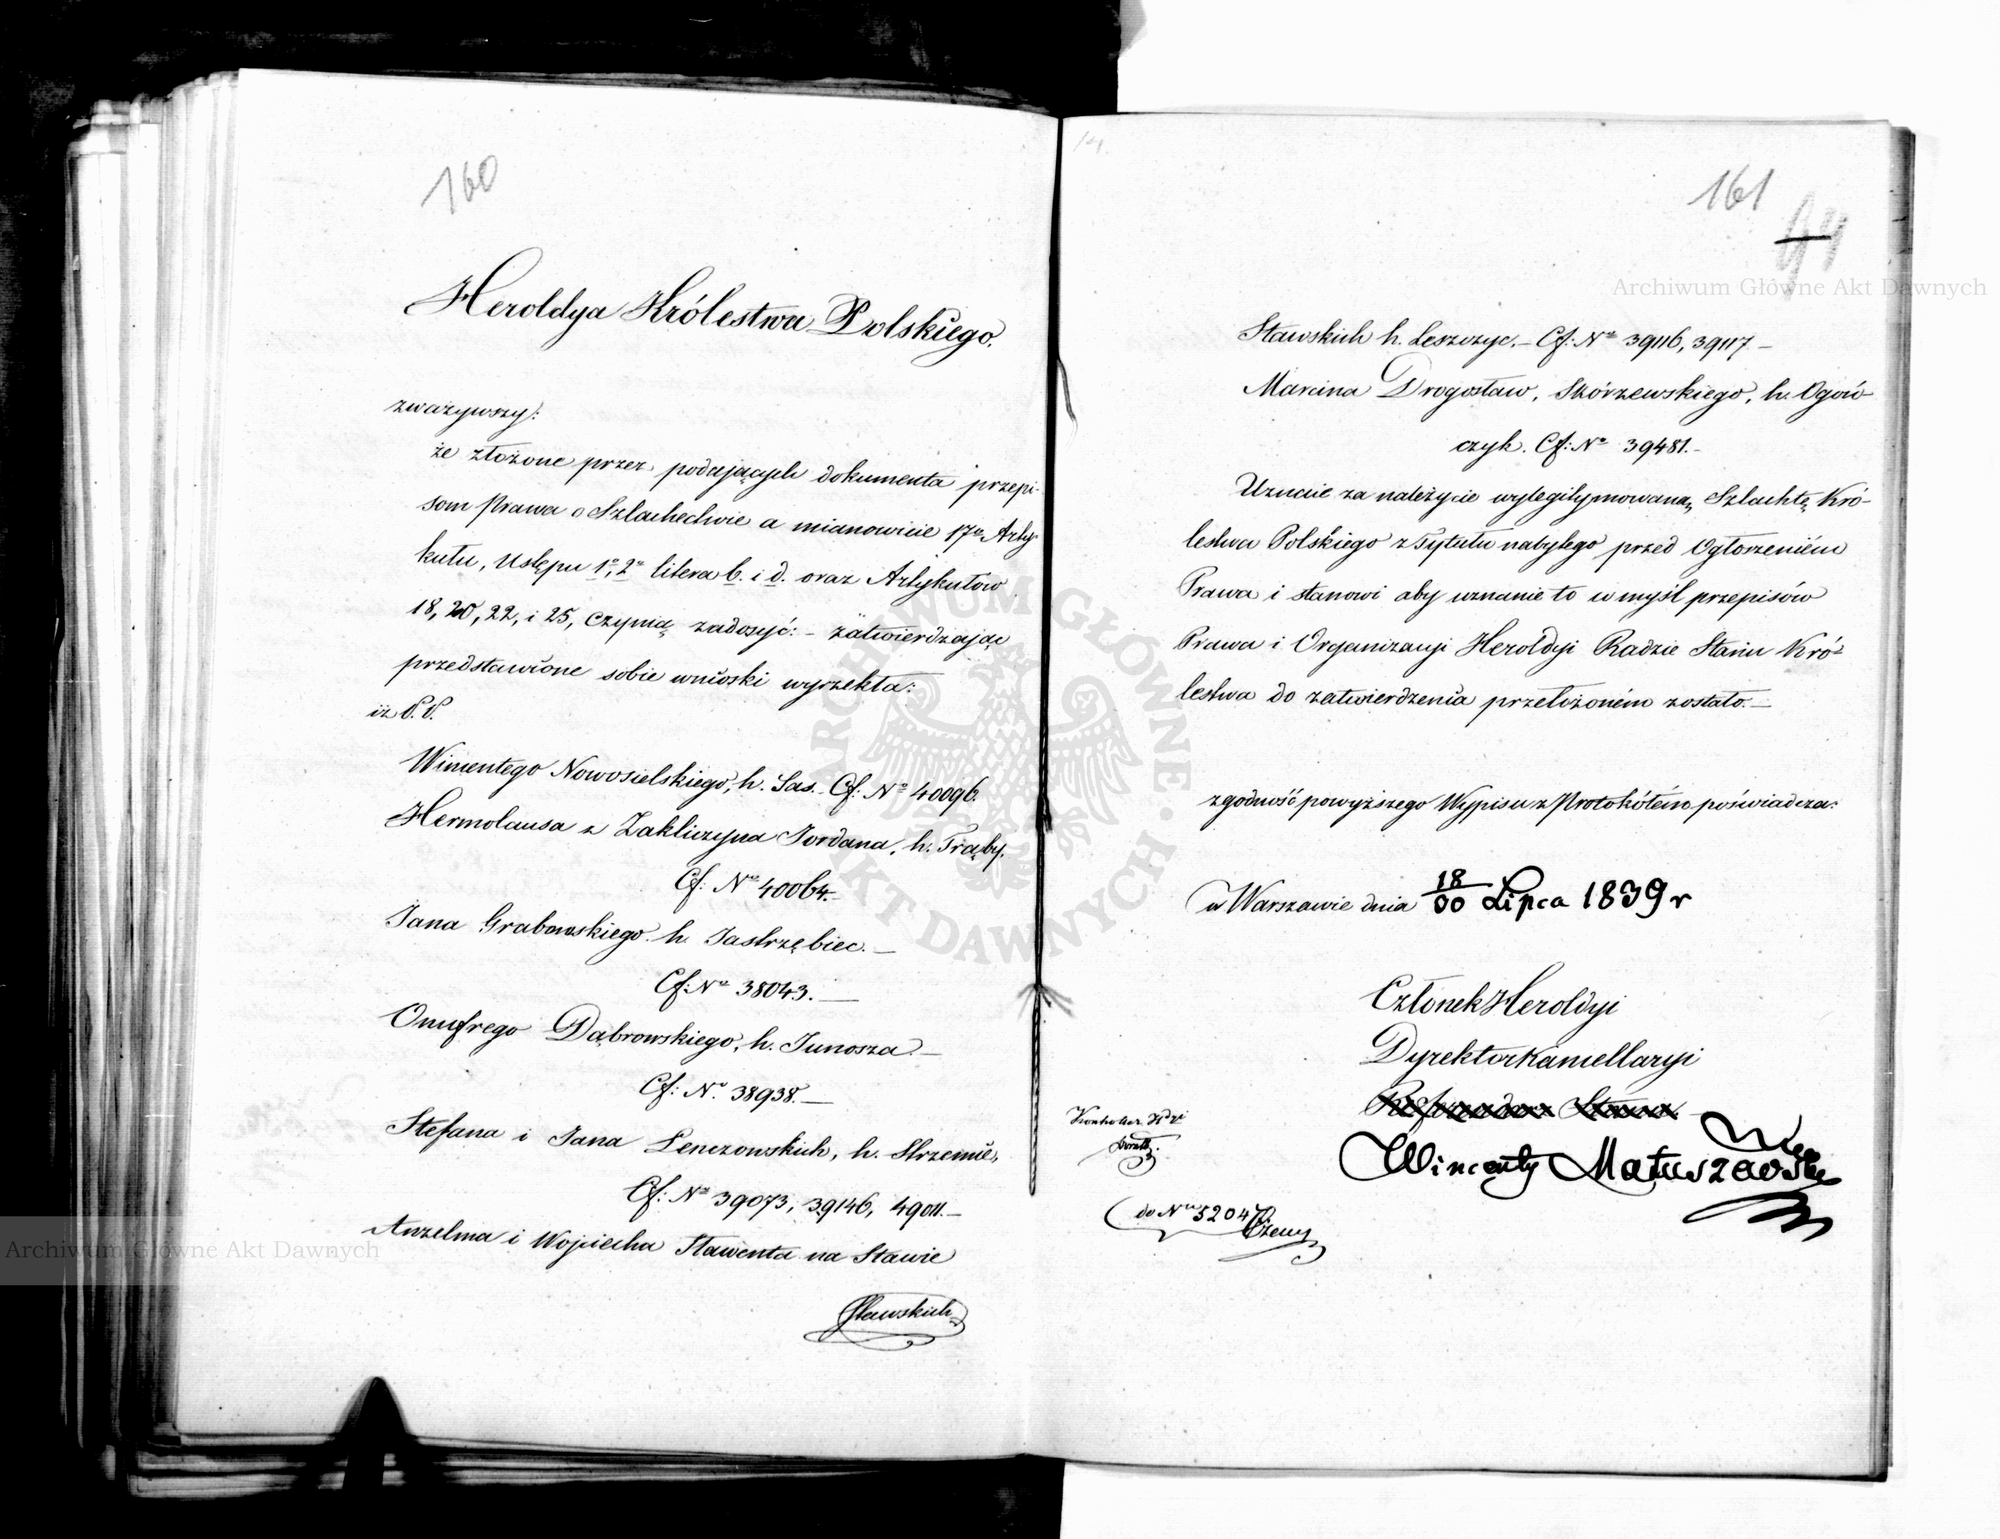 160
Heroldya Królestwa Polskiego.
zważywszy:
że złożone przez podających dokumenta przepi-
som Prawa o Szlachectwie a mianowicie 17go Arty-
kułu, Ustępu 1o, 2o litera b. i d. oraz Artykułów
18, 20, 22, i 25, czynią zadosyć: - zatwierdzając
przedstawione sobie wnioski wyrzekła:
iż P.P.
Wincentego Nowosielskiego, h. Sas. Cf: No 40096.
Hermolausa z Zakliczyna Jordana, h. Trąby.
Cf: No 40064.-
Jana Grabowskiego h. Jastrzębiec.-
Cf: No 38043.-
Onufrego Dąbrowskiego, h. Junosza.-
Cf: No. 38938.-
Stefana i Jana Lenczowskich, h. Strzemie,
Cf: No 39073, 39146, 49011.-
Anzelma i Wojciecha Stawenta na Stawie
Stawskich
14.
161
Stawskich h. Leszczyc.- Cf: No 39116, 39117-
Marcina Drogosław, Skórzewskiego, h. Ogoń-
czyk. Cf: No 39481.-
Uznaie za należycie wylegitymowaną Szlachtę Kró-
lestwa Polskiego z Tytułu nabytego przed Ogłoszeniem
Prawa i stanowi aby uznanie to w myśl przepisów
Prawa i Organizacyi Heroldyi Radzie Stanu Kró-
lestwa do zatwierdzenia przełożoném zostało.-
zgodność powyższego Wypisu z Protokółem poświadcza:
w Warszawie dnia 18/30 Lipca 1839 r
Członek Heroldyi
Dyrektor Kancellaryi
Referendarz Stanu
Wincenty Matuszewski
do Nru 5204
Archiwum Główne Akt Dawnych
Archiwum Główne Akt Dawnych
ARCHIWUM GŁÓWNE AKT DAWNYCH